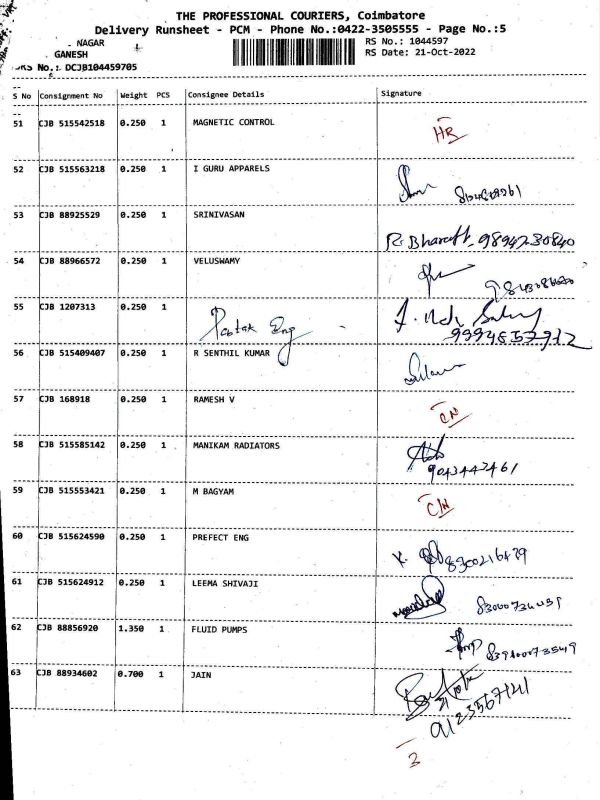 THE PROFESSIONAL COURIERS, Coimbatore
Delivery Runsheet - PCM - Phone No.:0422-3505555 - Page No.:5
NAGAR
GANESH
RS No.: 1044597
RS Date: 21-Oct-2022
No.: DCJB104459705
S No Consignment No Weight PCS Consignee Details Signature
51 CJB 515542518 0.250 1 MAGNETIC CONTROL
HR
52 CJB 515563218 0.250 1 I GURU APPARELS
53 CJB 88925529 0.250 1 SRINIVASAN
R. Bharath 9894230840
54 CJB 88966572 0.250 1 VELUSWAMY
55 CJB 1207313 0.250 1
Eng
56 CJB 515409407 0.250 1 R SENTHIL KUMAR
57 CJB 168918 0.250 1 RAMESH V
CN
58 CJB 515585142 0.250 1 MANIKAM RADIATORS
9043447461
59 CJB 515553421 0.250 1 M BAGYAM
C/N
60 CJB 515624590 0.250 1 PREFECT ENG
K.
61 CJB 515624912 0.250 1 LEEMA SHIVAJI
62 CJB 88856920 1.350 1 FLUID PUMPS
63 CJB 88934602 0.700 1 JAIN
3